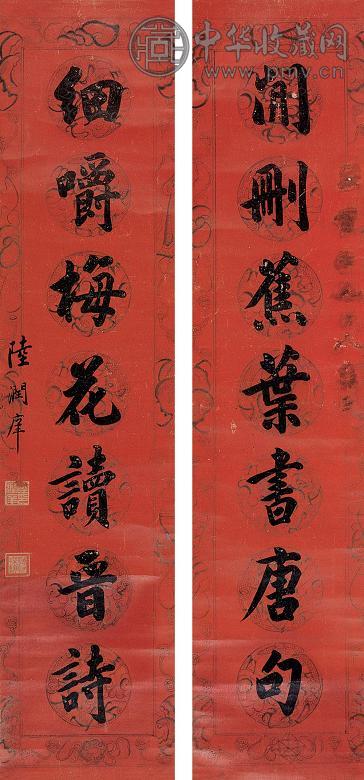 中华收藏网
www.pmv.cn
閒刪蕉葉書唐句
細嚼梅花讀晋詩
陸潤庠